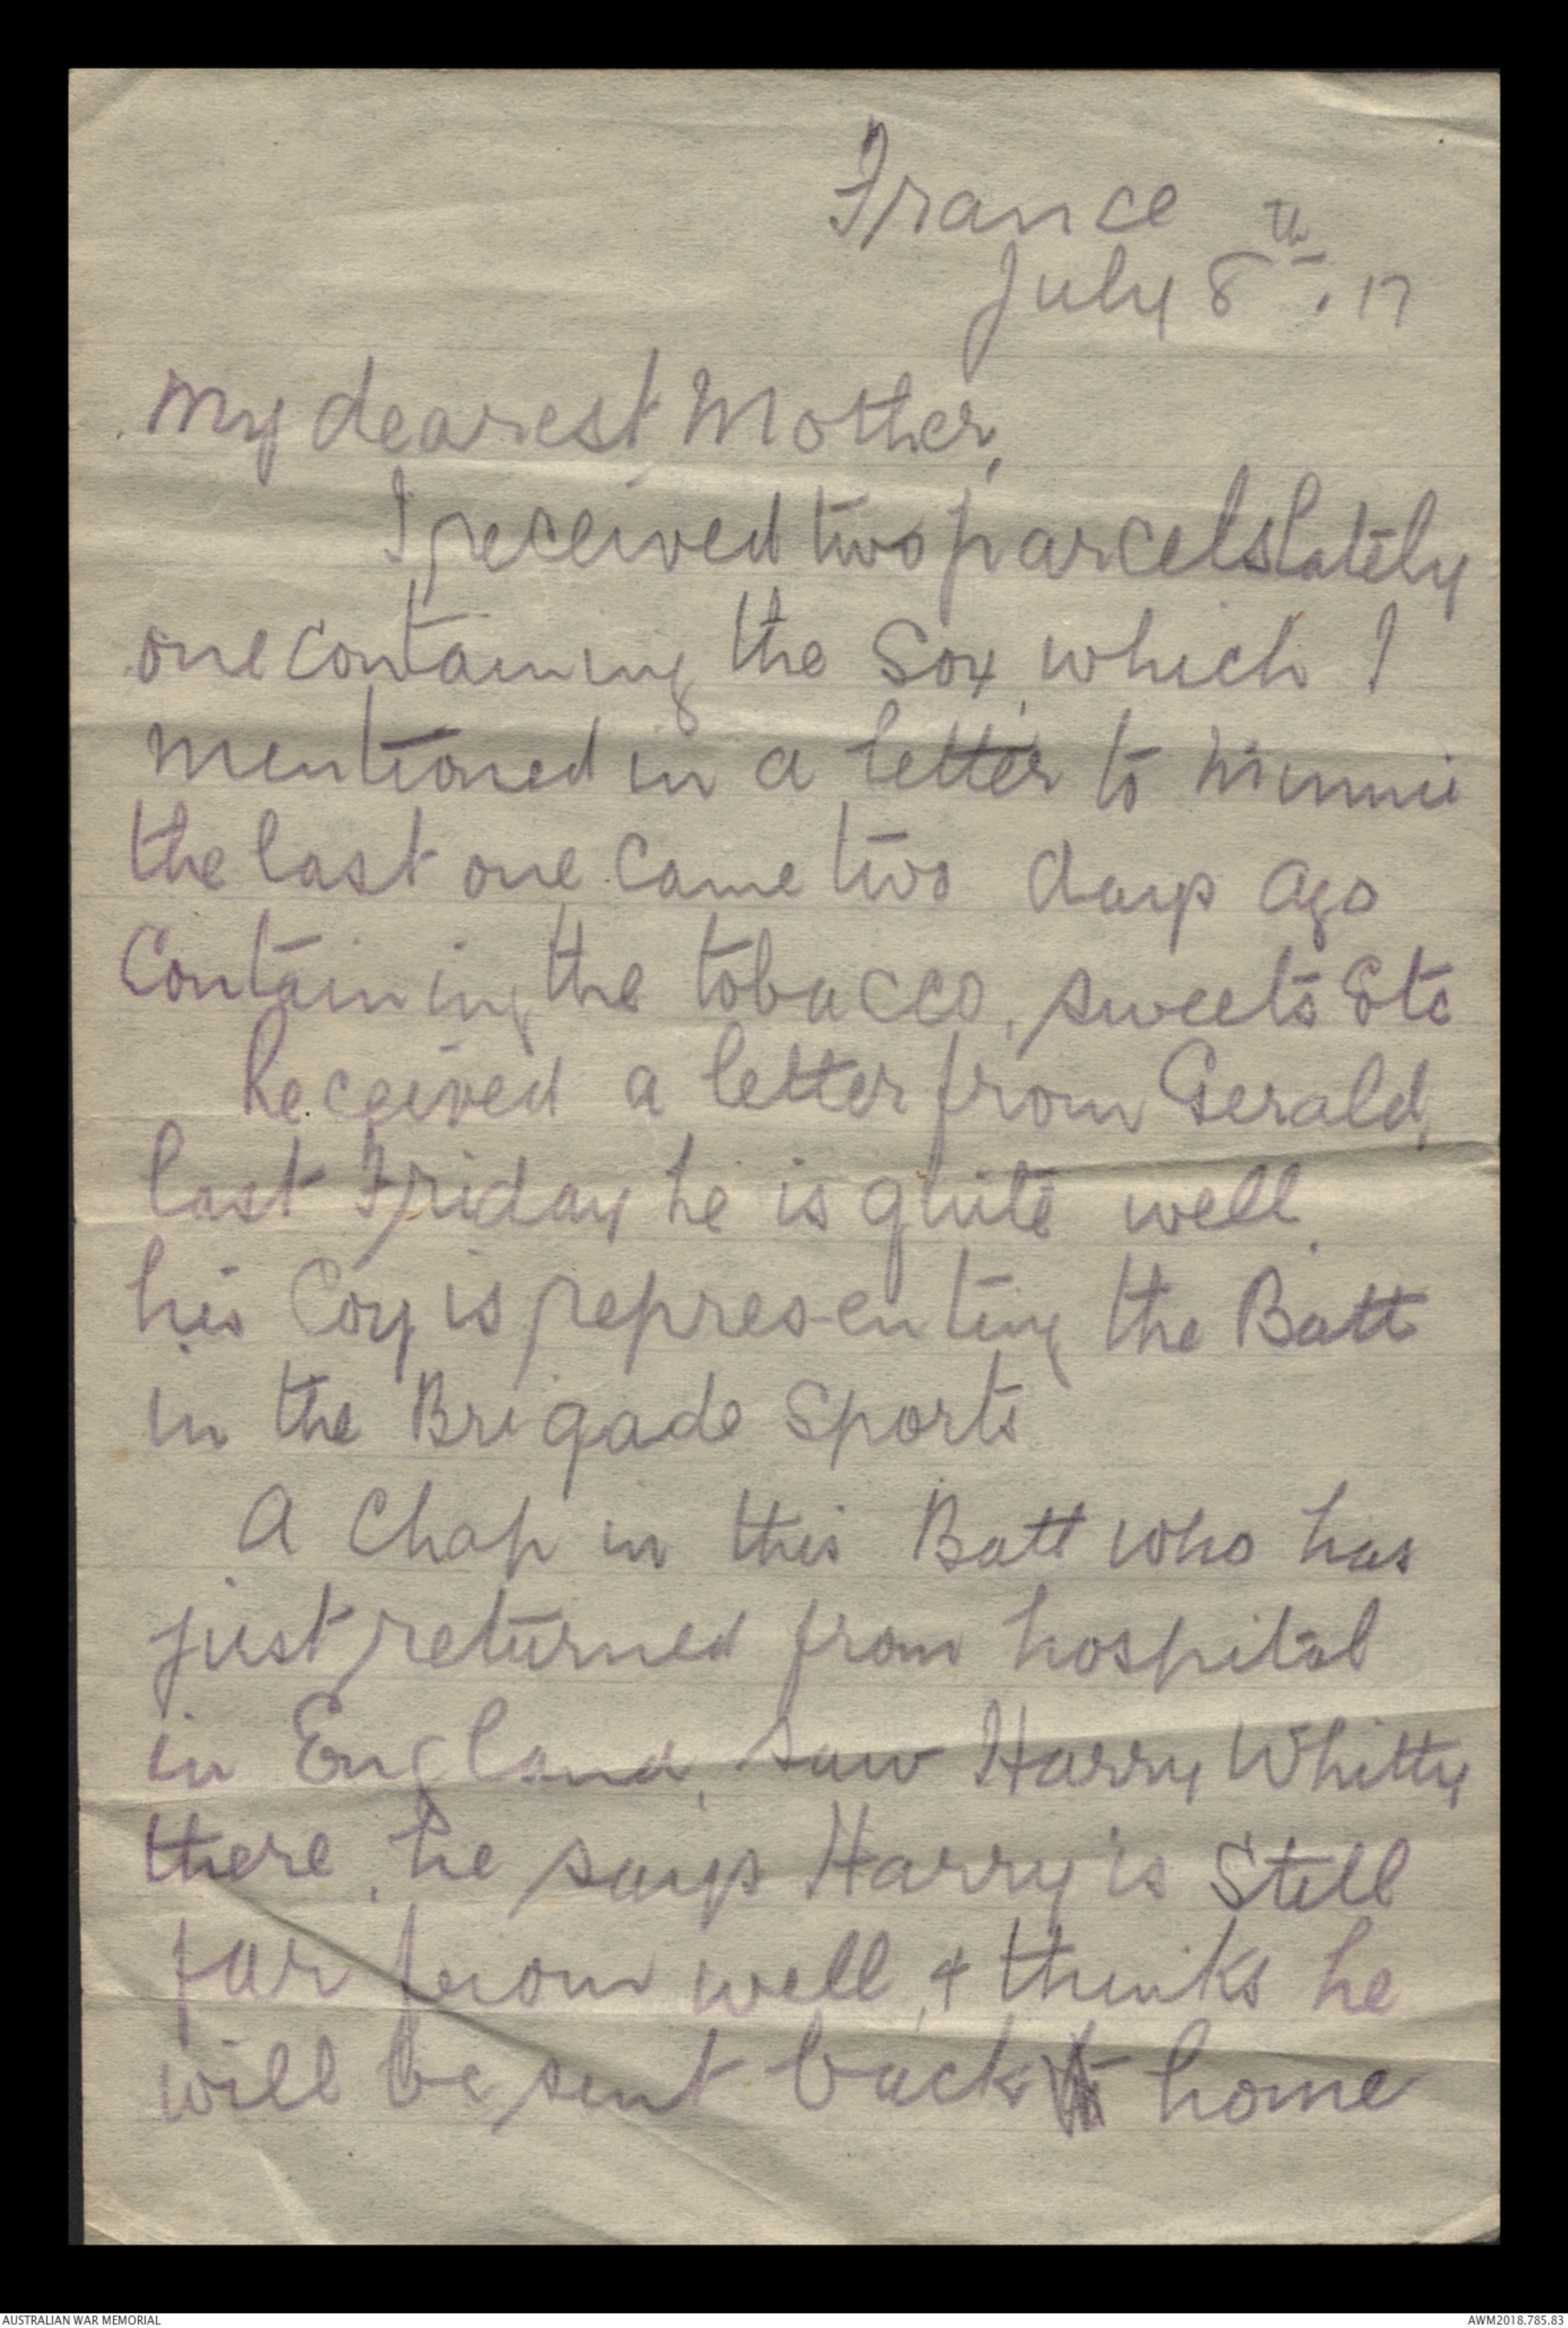 France
July 8th. 17
My dearest Mother,
I received two parcels lately
one containing the Sox, which I
mentioned in a letter to Minnie
the last one came two days ago
Containing the tobacco, sweets Etc
Received a letter from Gerald,
last Friday he is quite well.
his Coy is representing the Batt
in the Brigade Sports
A Chap in this Batt who has
just returned from hospital
in England, saw Harry Whitty
there, he says Harry is Still
far from well, & thinks he
will be sent back home
AUSTRALIAN WAR MEMORIAL
AWM2018.785.83